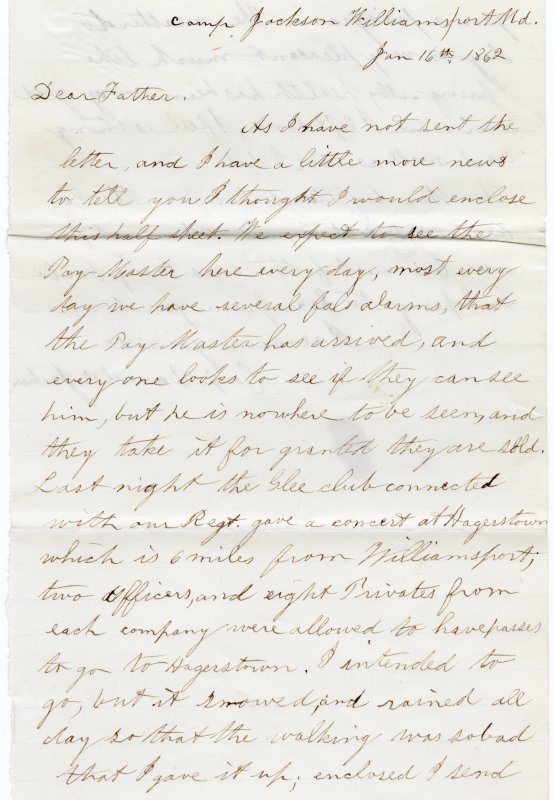 Camp Jackson Williamsport Md.
Jan 16th 1862
Dear Father
As I have not sent the
letter, and I have a little more news
to tell you I thought I would enclose
this half sheet. We expect to see the
Pay Master here every day, most every
day we have several fals alarms, that
the Pay Master has arrived, and
every one looks to see if they can see
him, but he is nowhere to be seen, and
they take it for granted they are sold.
Last night the Glee club connected
with our Regt. gave a concert at Hagerstown
which is 6 miles from Williamsport,
two officers, and eight Privates from
each company were allowed to have passes
to go to Hagerstown. I intended to
go, but it snowed, and rained all
day so that the walking was so bad
that I gave it up; enclosed I send